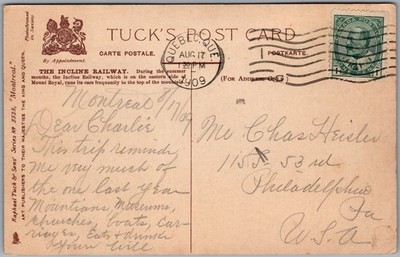 TUCK'S POST CARD
CARTE POSTALE.
POSTKARTE.
By Appointment.
THE INCLINE RAILWAY. During the summer
months, the Incline Railway, which is on the eastern side of
Mount Royal, runs its cars frequently to the top of the mountain.
(FOR ADDRESS ONLY.)
QUEBEC, QUE.
AUG 17
PM
1909
Raphael Tuck & Sons' Series "Montreal."
ART PUBLISHERS TO THEIR MAJESTIES THE KING AND QUEEN.
Montreal 8/17/09
Dear Charlie
This trip reminds
me very much of
the one last year
Mountains, Museums,
churches, boats, car-
riages, Eats & drinks
Your
Mr Chas Heisler
115 S. 53rd
Philadelphia
Pa
U.S.A